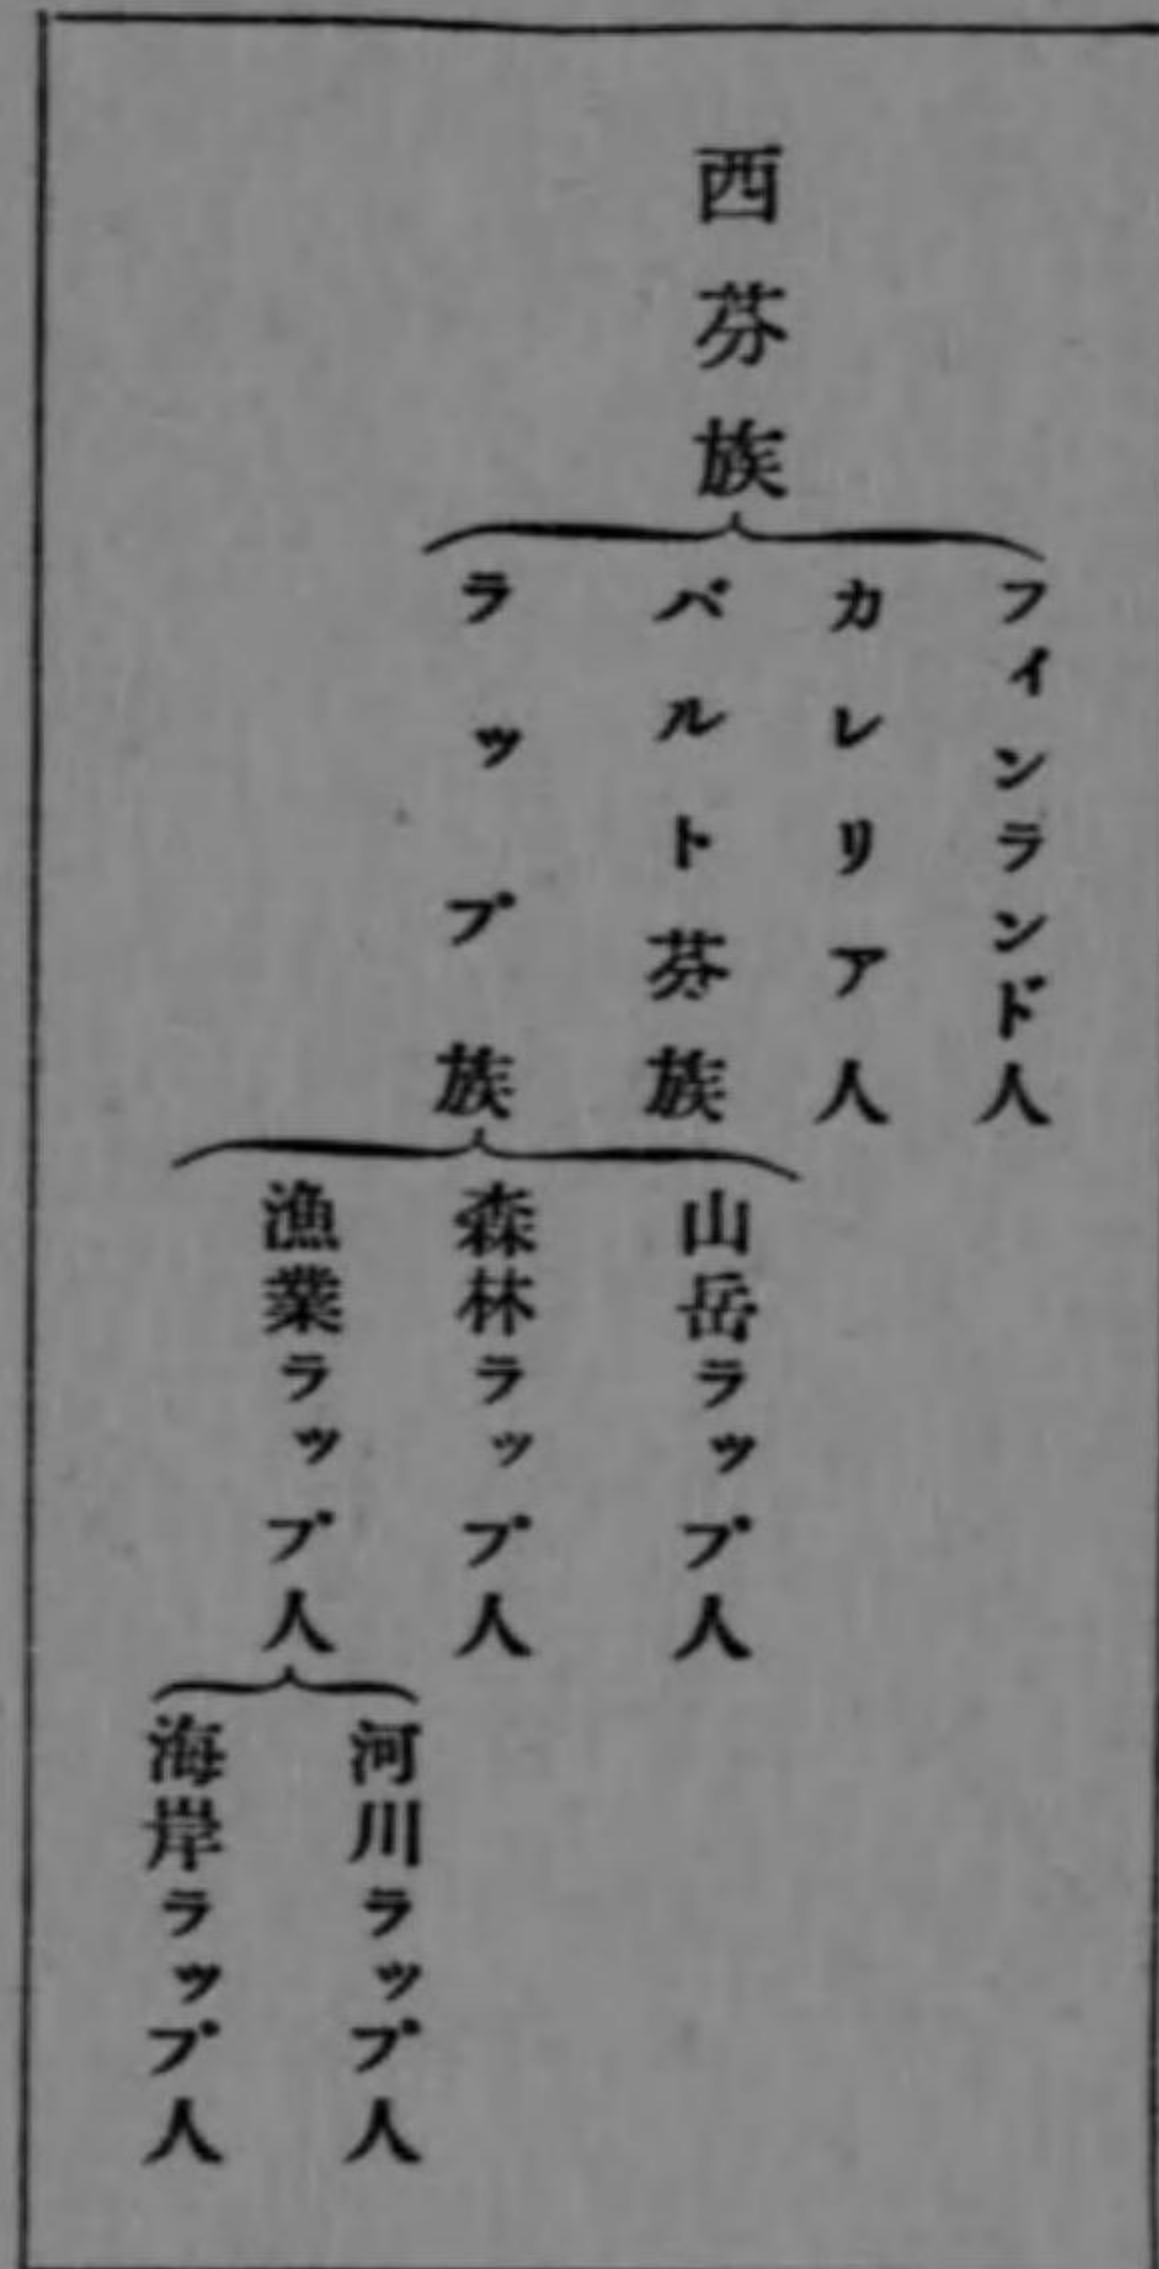 西芬族
フインランド人
カレリア人
バルト芬族
ラップ族
山岳ラップ人
森林ラップ人
漁業ラップ人
河川ラップ人
海岸ラップ人